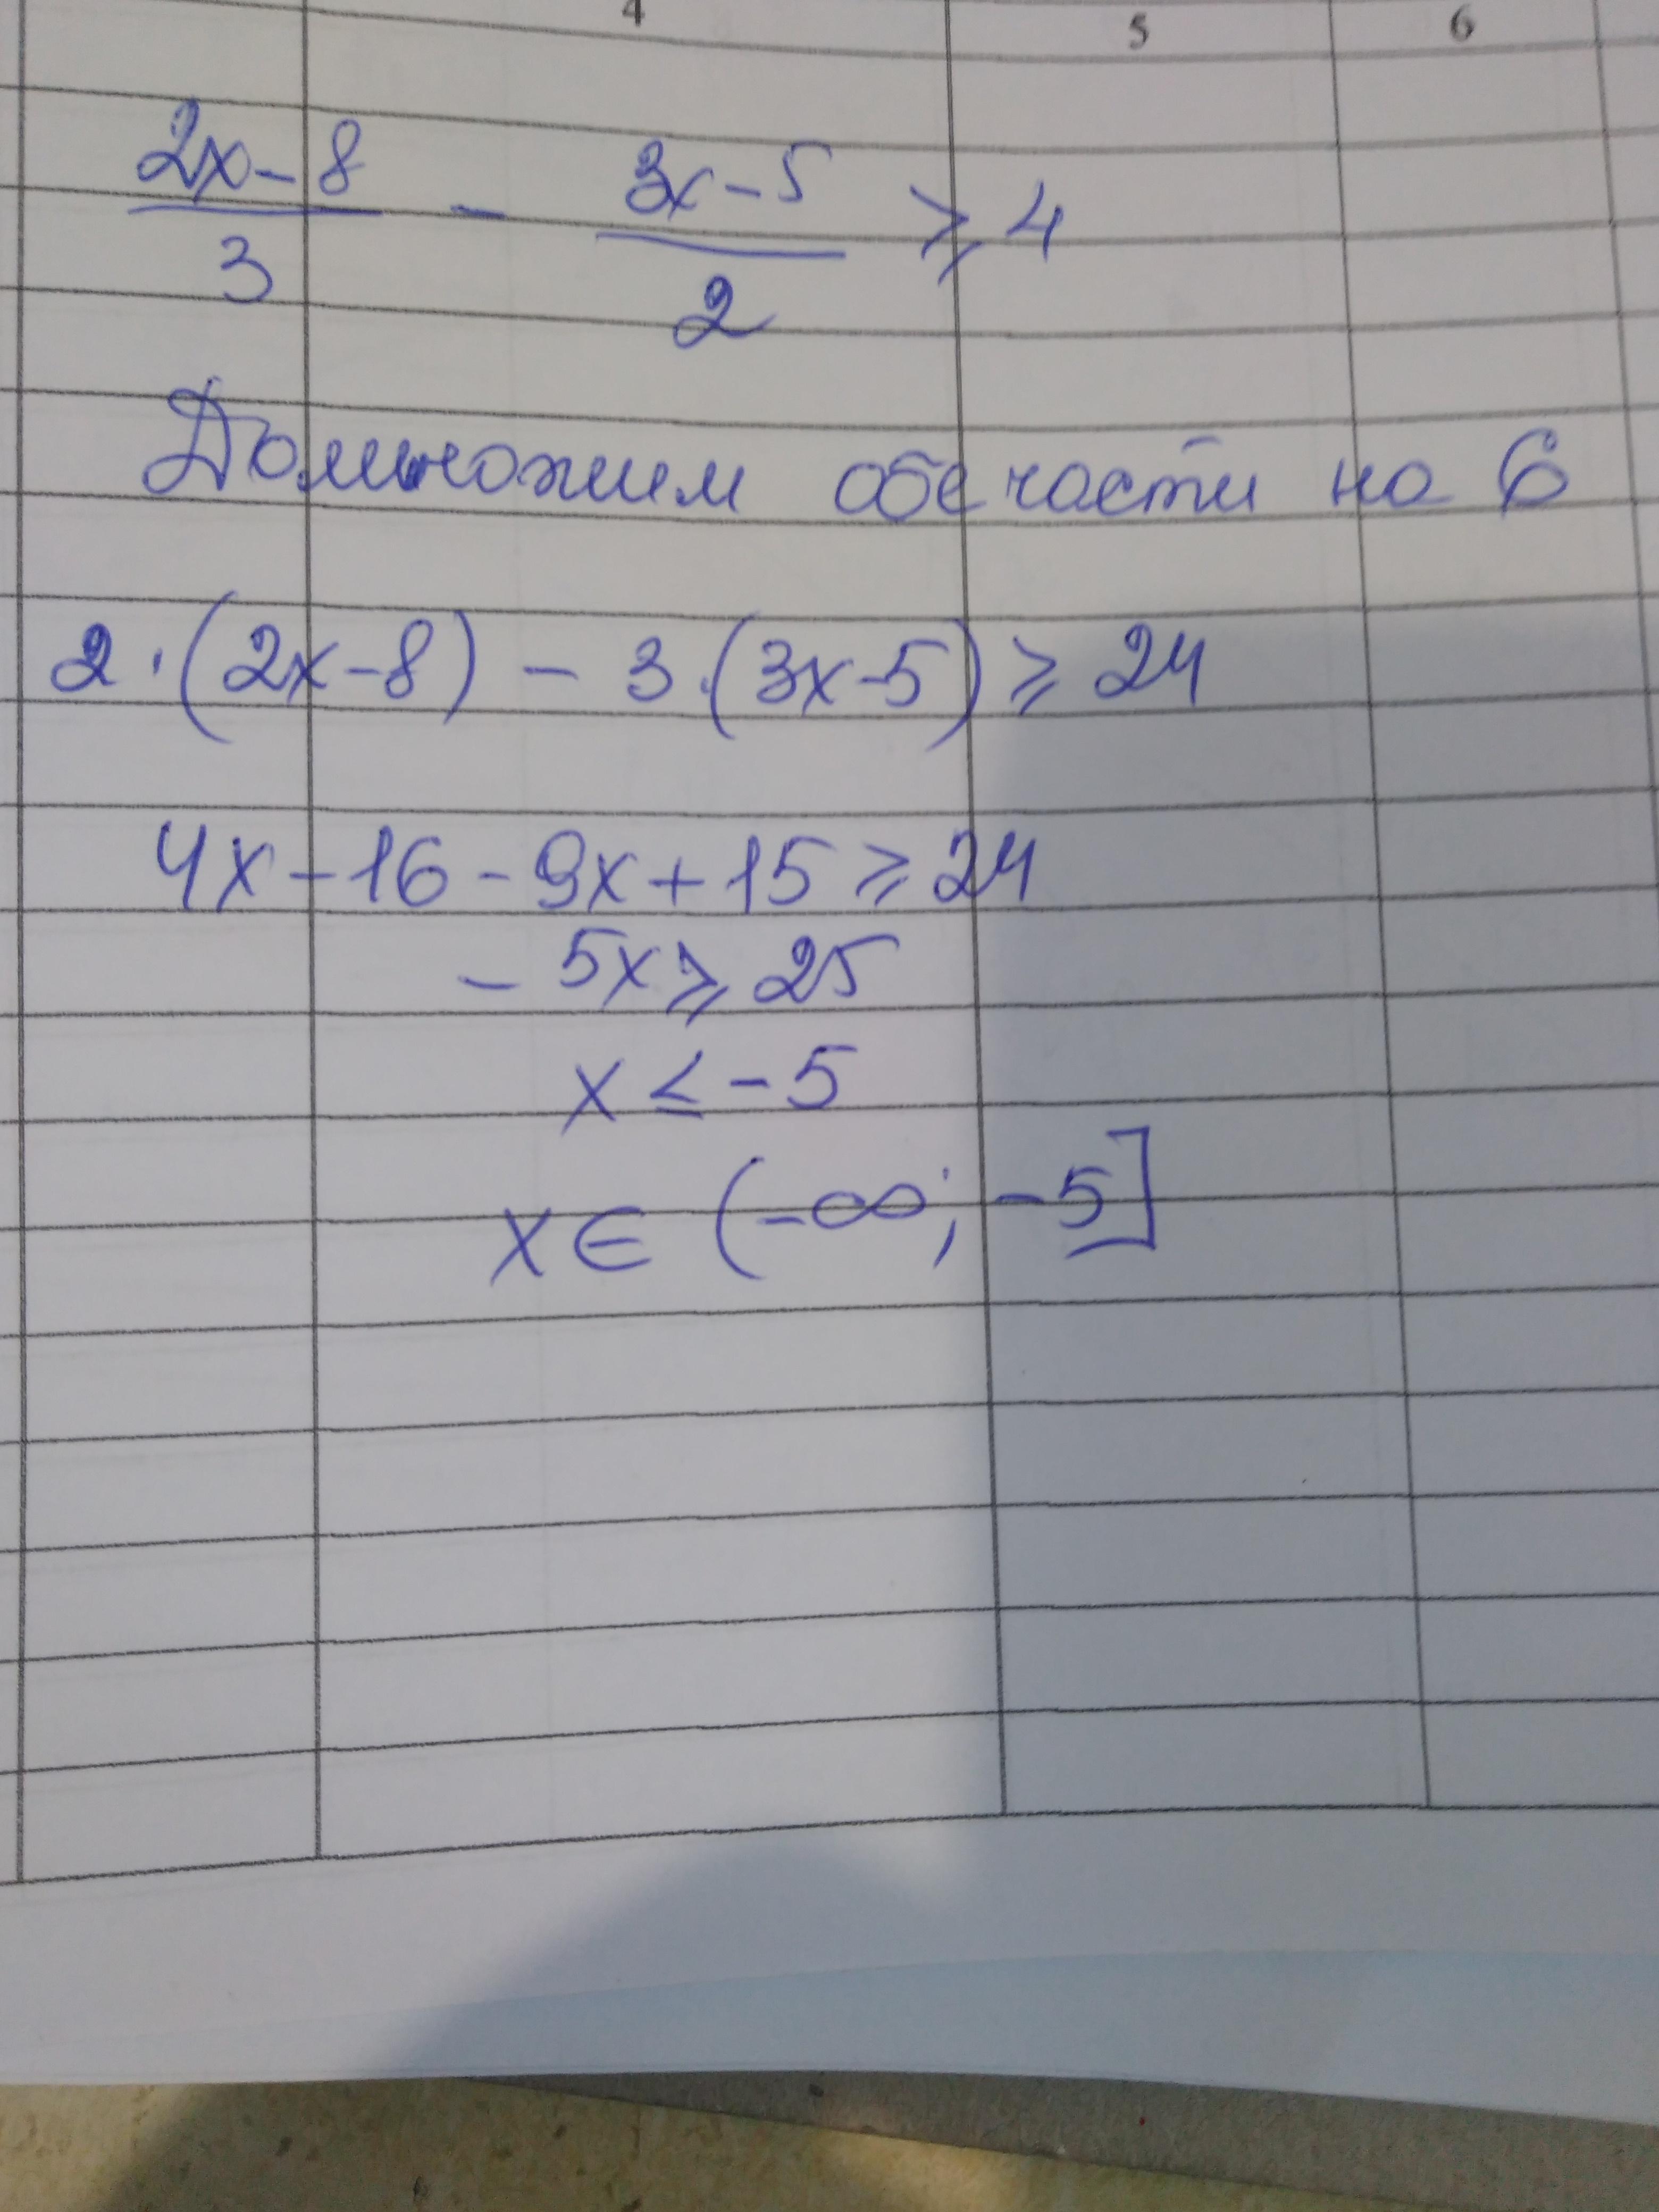 4 5 6
2x-8 / 3 - 3x-5 / 2 ⩾ 4
Домножим обе части на 6
2·(2x-8) - 3·(3x-5) ⩾ 24
4x-16-9x+15 ⩾ 24
-5x ⩾ 25
x ≤ -5
x ∈ (-∞; -5]